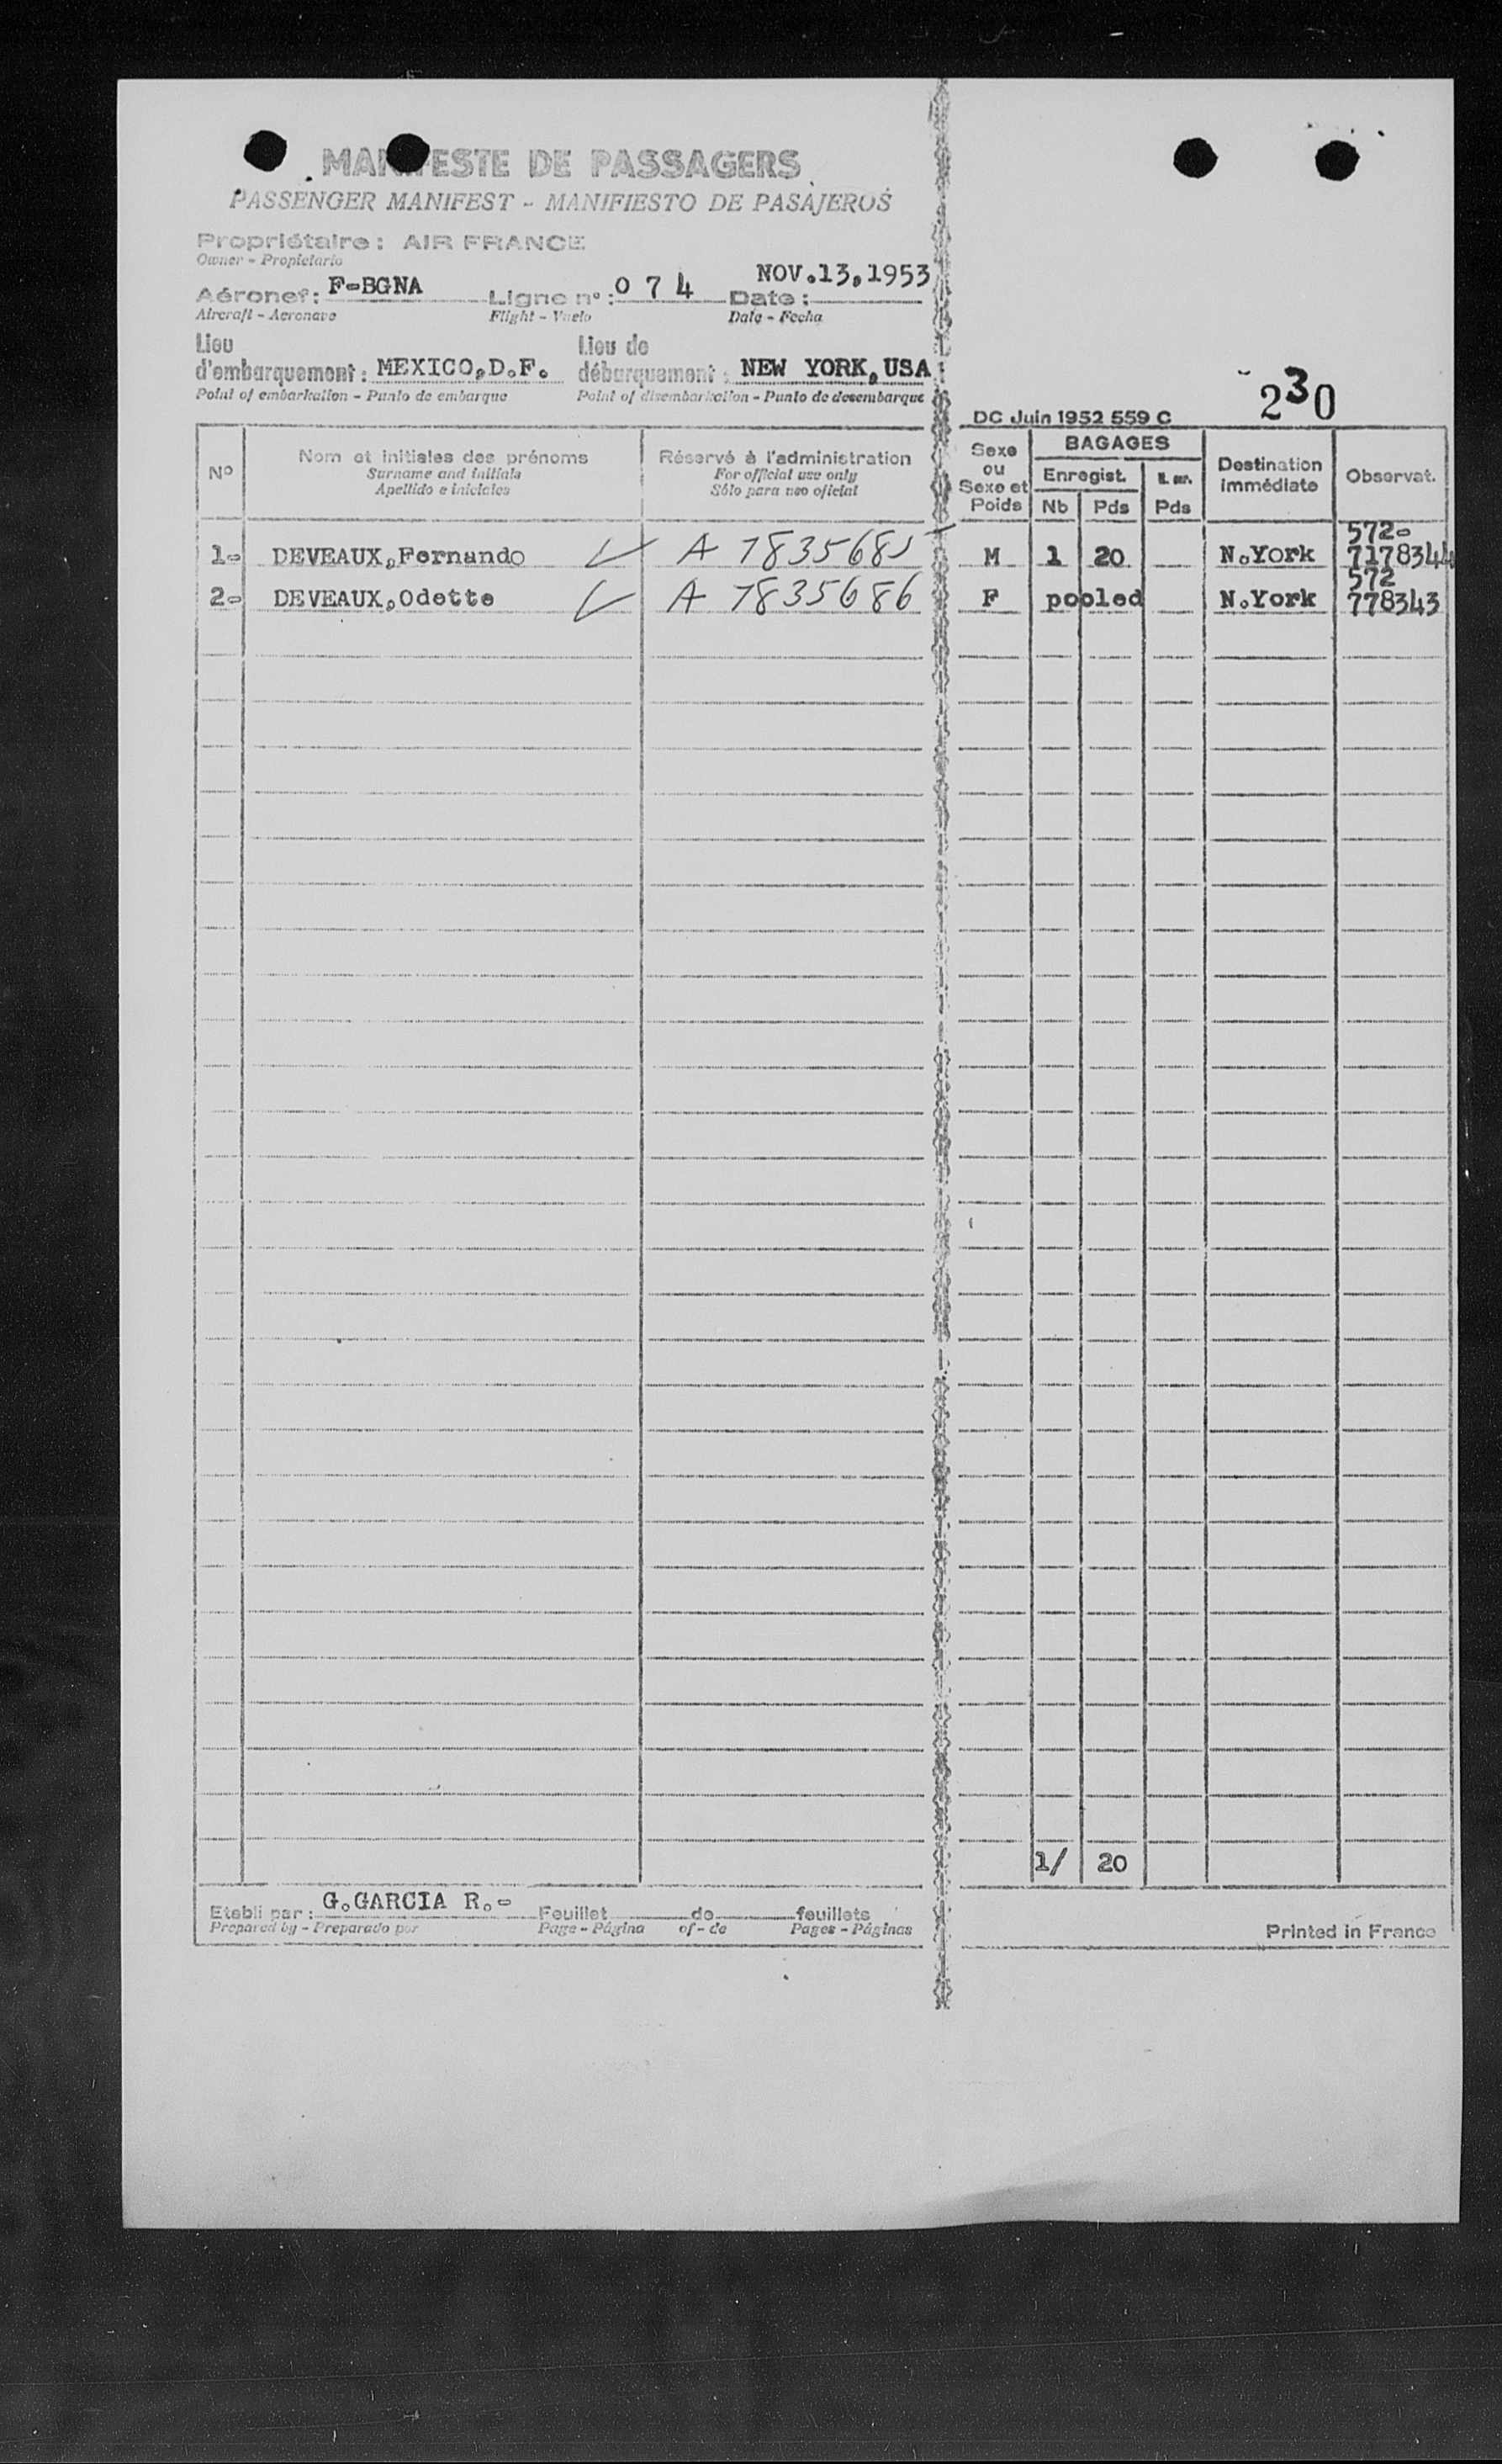 MANIFESTE DE PASSAGERS
PASSENGER MANIFEST - MANIFIESTO DE PASAJEROS
Propriétaire : AIR FRANCE
Owner - Propietario
Aéronef : F-BGNA Ligne n° : 0 7 4 Date : NOV.13,1953
Aircraft - Aeronave Flight - Vuelo Date - Fecha
Lieu d'embarquement : MEXICO,D.F. Lieu de débarquement : NEW YORK,USA
Point of embarkation - Punto de embarque Point of disembarkation - Punto de desembarque
230
DC Juin 1952 559 C
N° Nom et initiales des prénoms Réservé à l'administration Sexe ou Sexe et Poids BAGAGES Destination immédiate Observat.
Surname and initials For official use only Enregist.
Apellido e iniciales Sólo para uso oficial Nb Pds Pds
572-
1- DEVEAUX,Fernando A 7835685 M 1 20 N.York 7178344
572
2- DEVEAUX,Odette A 7835686 F pooled N.York 778343
1/ 20
Etabli par : G.GARCIA R.- Feuillet de feuillets
Prepared by - Preparado por Page - Página of - de Pages - Páginas
Printed in France